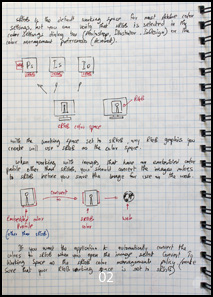 sRGB is the default working space for most Adobe color
settings, but you can verify that sRGB is selected in the
Color Settings dialog box (Photoshop, Illustrator, InDesign) or the
color management preferences (Acrobat).
Ps
Is
Io
sRGB
sRGB color space
With the working space set to sRGB, any RGB graphics you
create will use sRGB as the color space.
When working with images that have an embedded color
profile other than sRGB, you should convert the image's colors
to sRGB before you save the image for use on the web.
Convert to
Embedded color
Profile
(other than sRGB)
sRGB
color
Web
If you want the application to automatically convert the
colors to sRGB when you open the image, select Convert to
Working Space as the RGB color management policy. (Make
sure that your RGB working space is set to sRGB.)
02